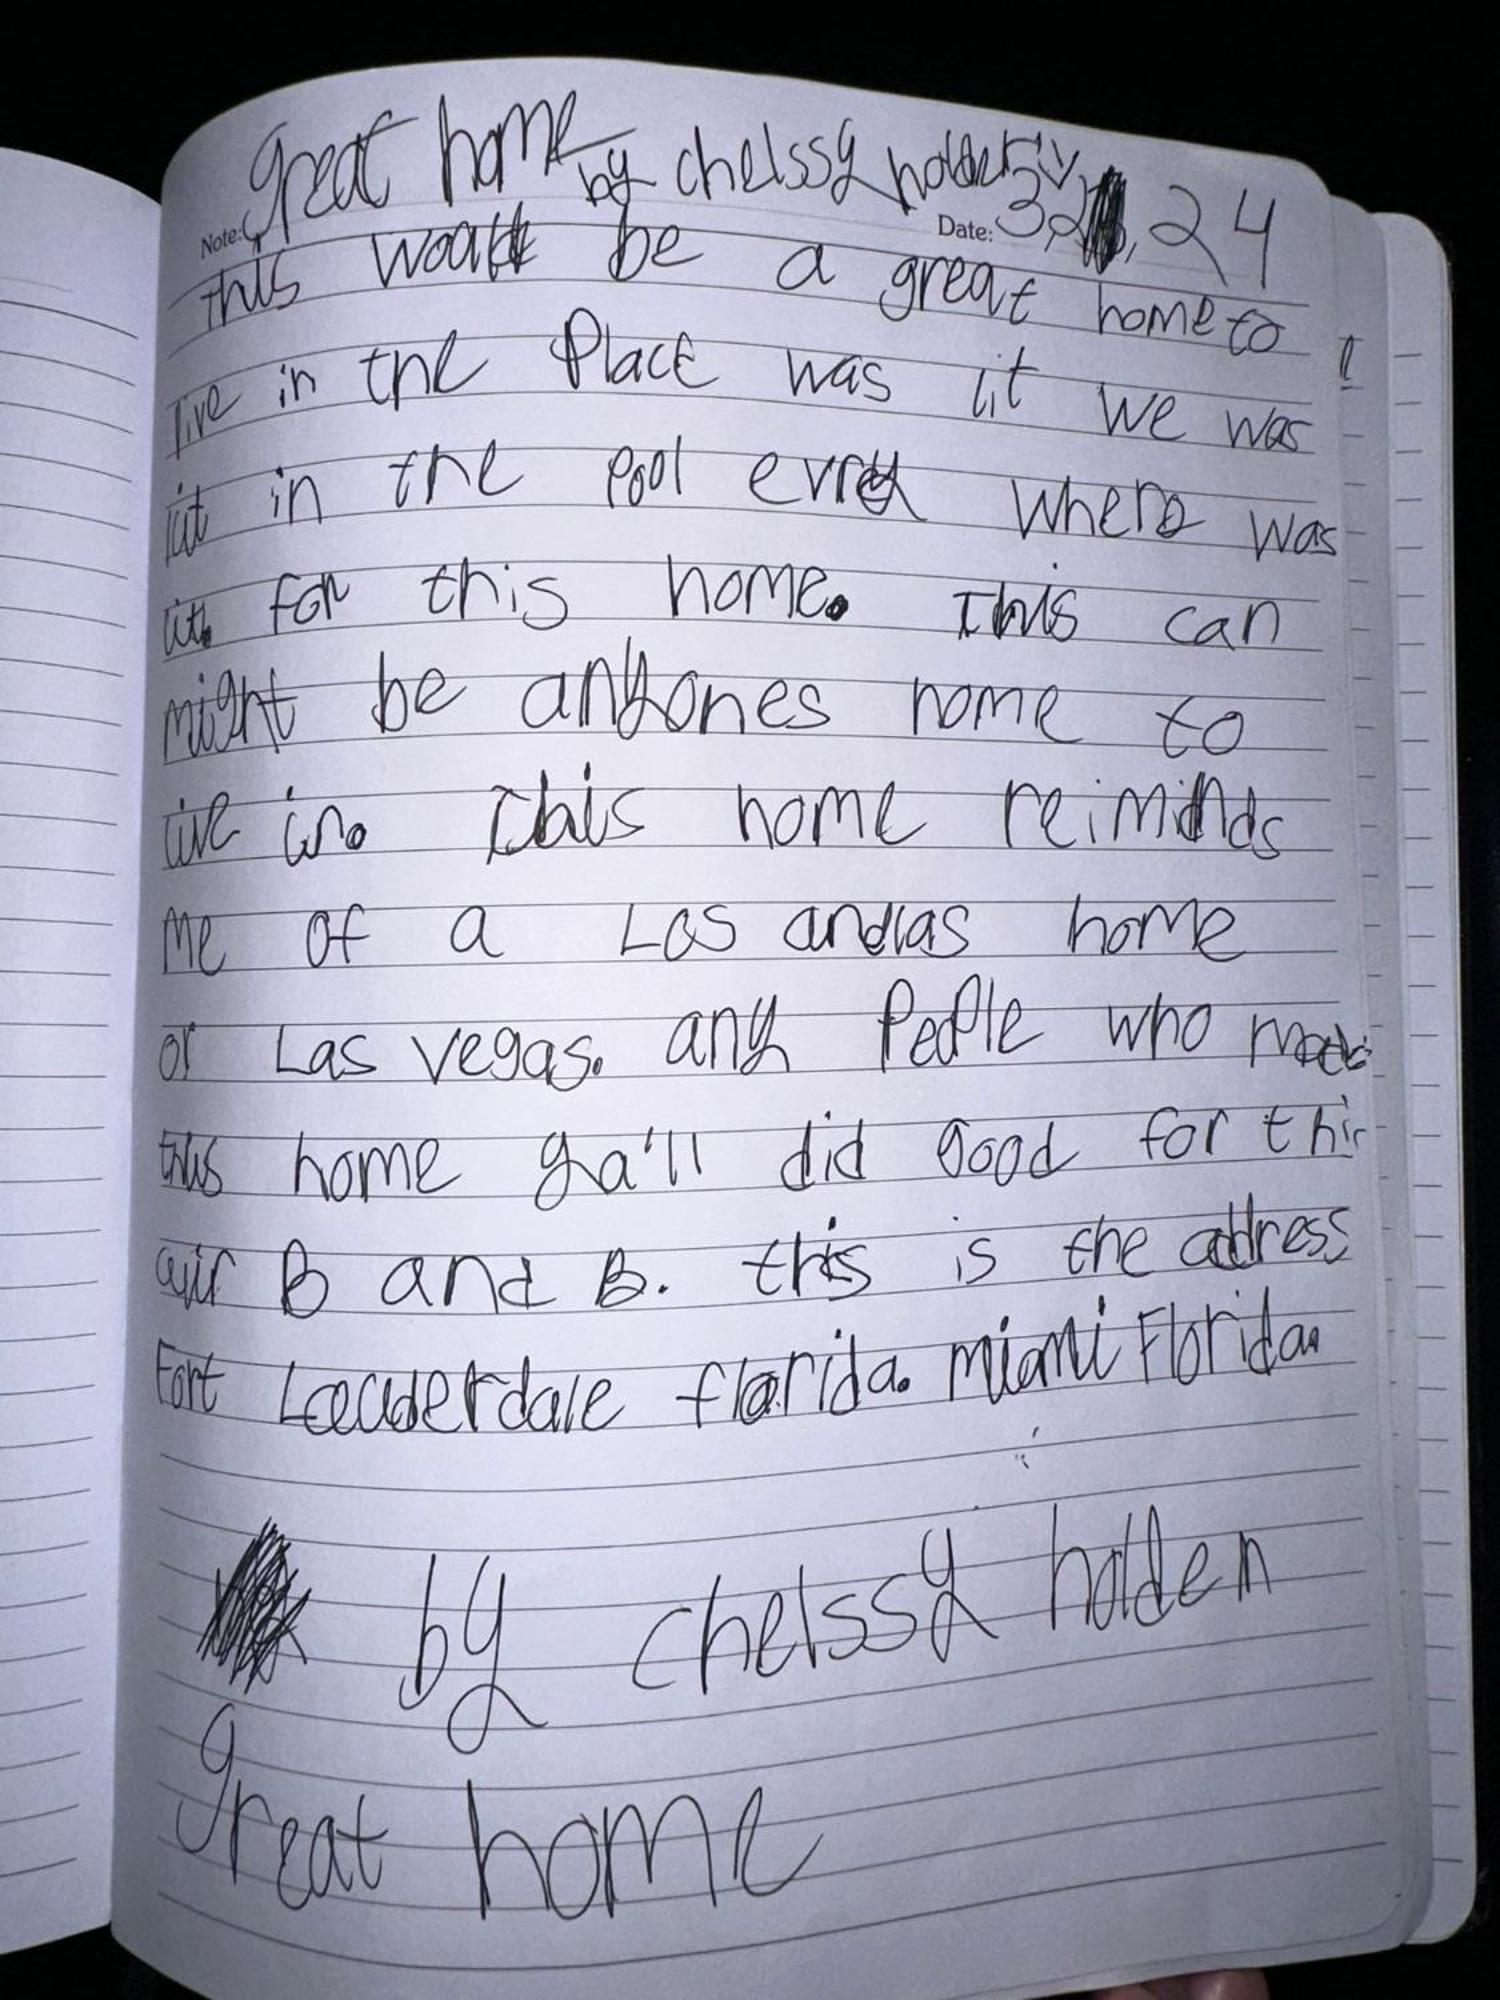 great home by chelssy holden
Note: Date: 3,2 , 24
This would be a great home to
live in the Place was lit we was
lit in the pool evrey where was
lit. for this home. This can
might be anyones home to
live in. This home reiminds
me of a Los andlas home
or Las vegas. any People who made
this home ya'll did good for this
air B and B. this is the address
Fort Lauderdale florida. Miami Florida.
by chelssy holden
great home